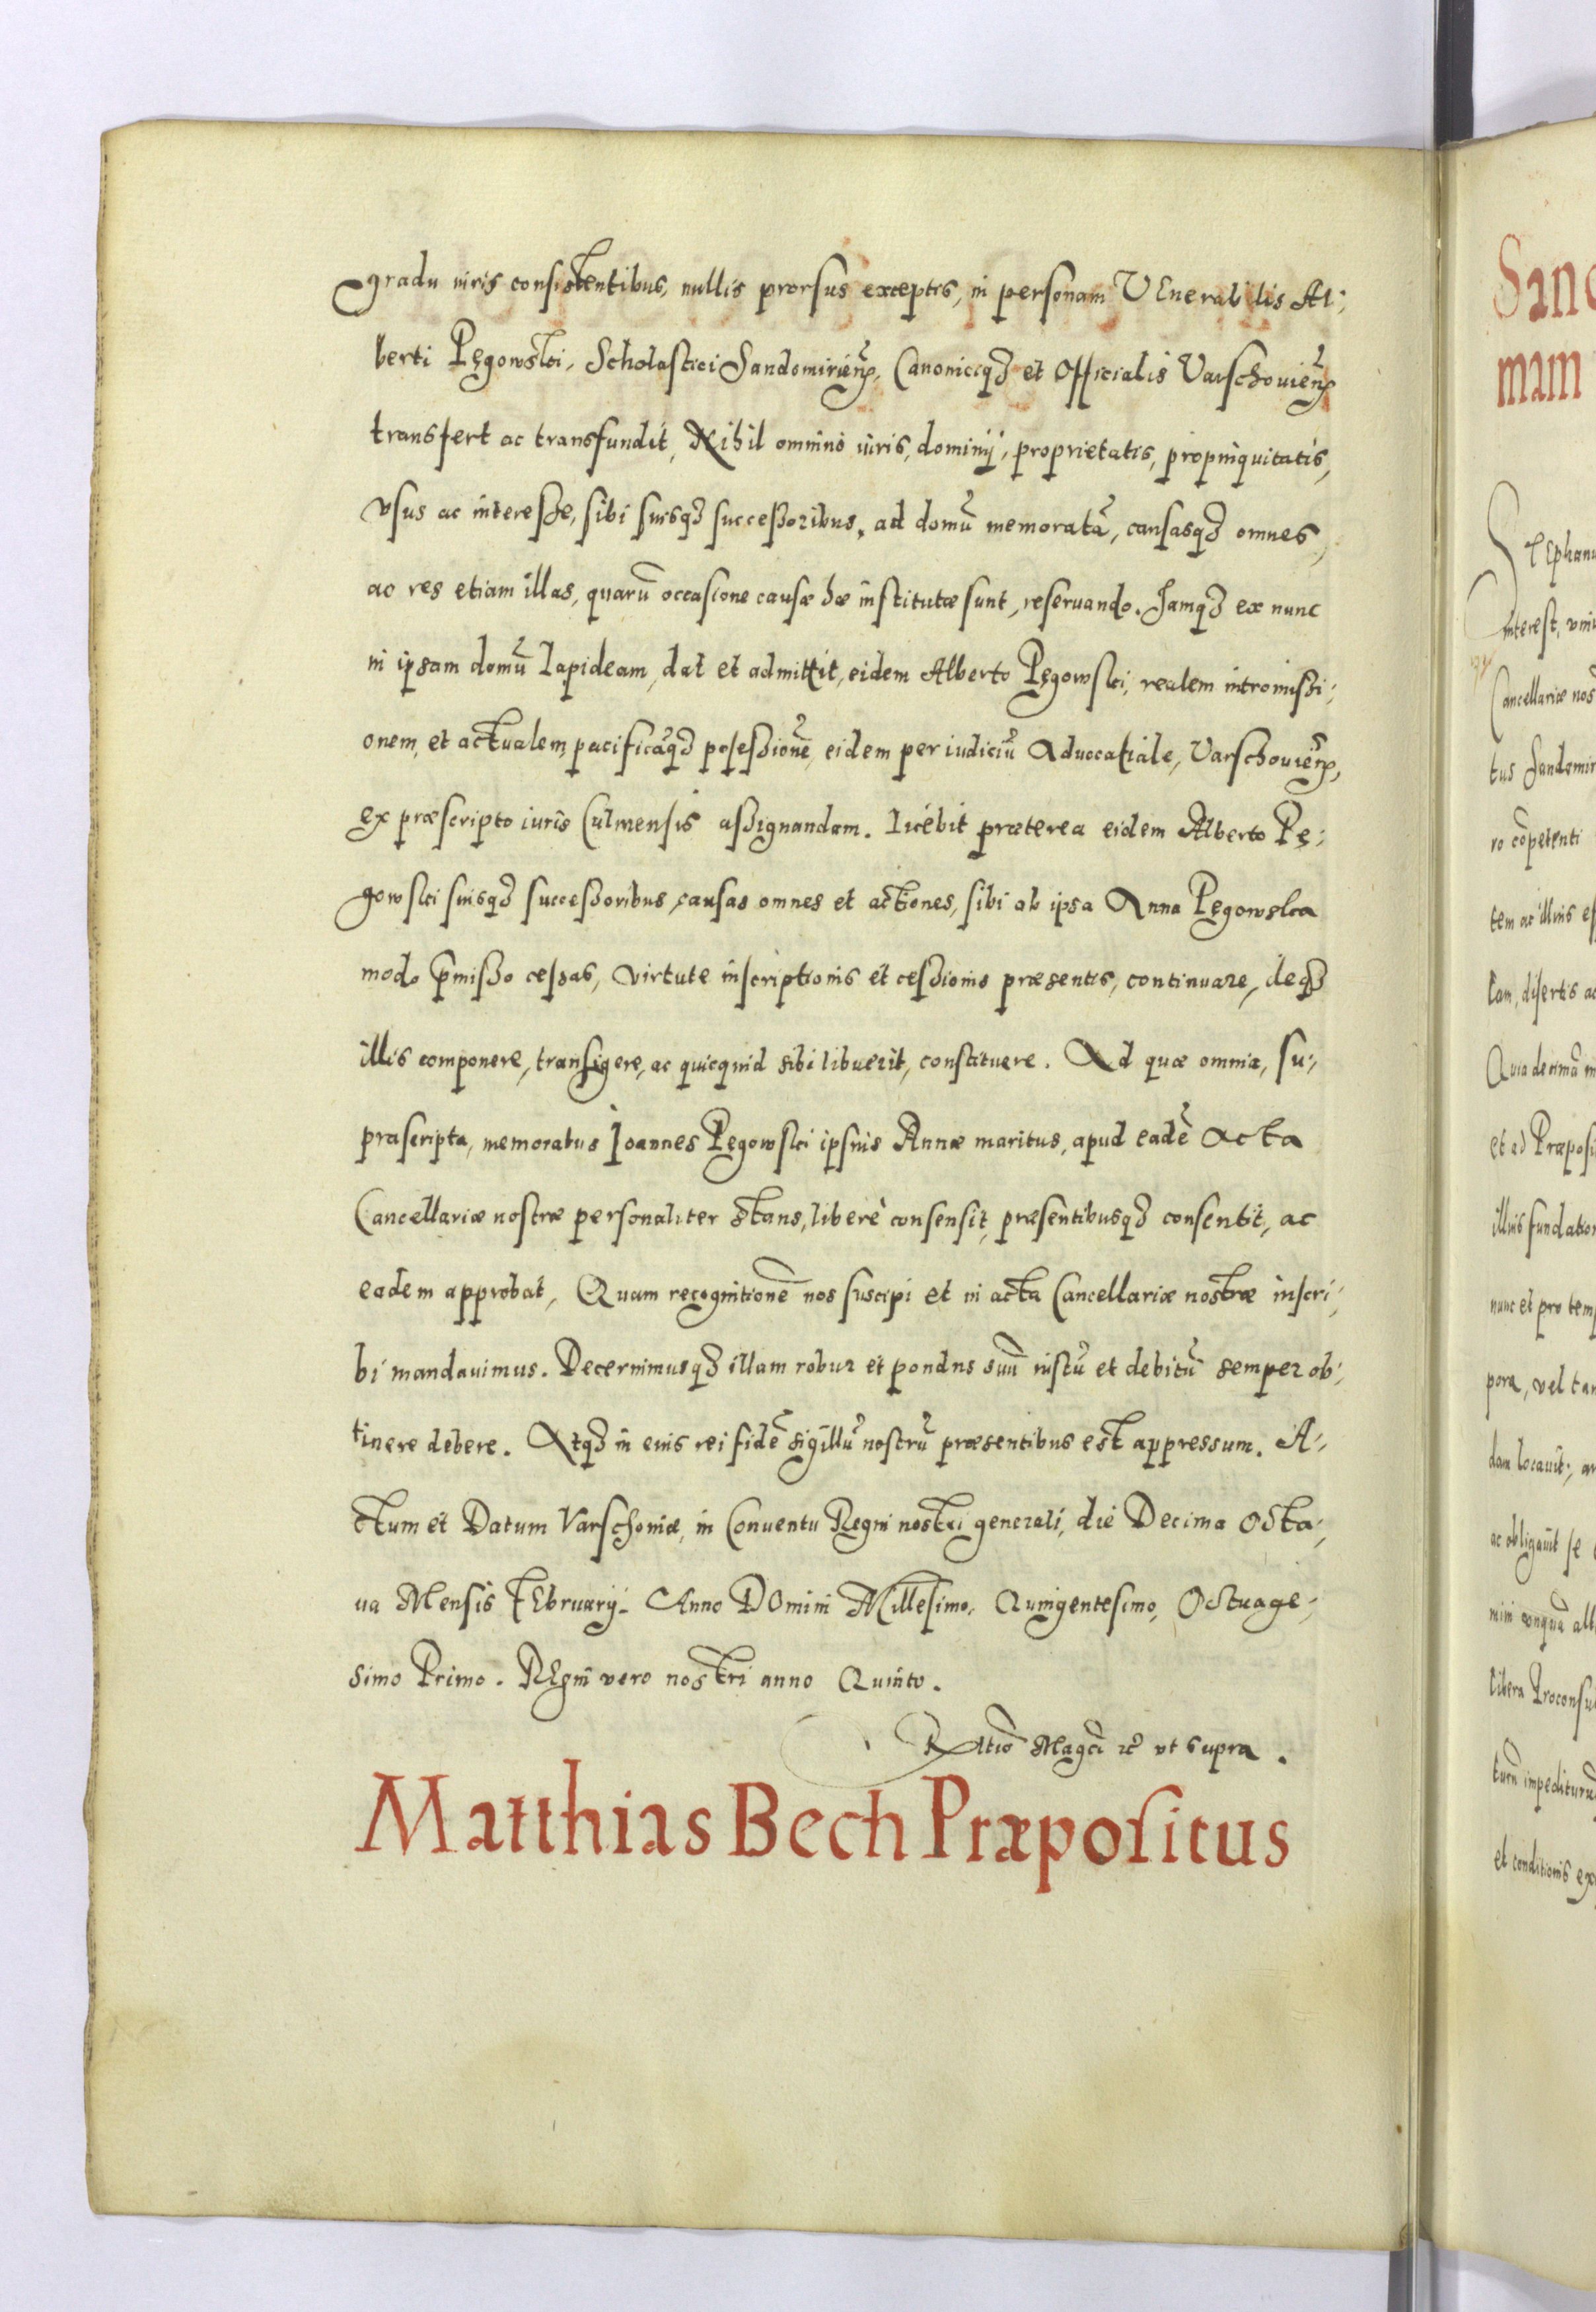 gradu iuris consistentibus, nullis prorsus exceptis, in personam VEnerabilis Al:
berti Pęgowski, Scholastici Sandomirieñ, Canoniciq₃ et Officialis Varschouieñ
transfert ac transfundit, Nihil omnino iuris, dominij, proprietatis, propinquitatis,
vsus ac interesse, sibi suisq₃ successoribus, ad domũ memoratã, causasq₃ omnes,
ac res etiam illas, quarũ occasione causæ hæ institutæ sunt, reseruando. Jamq₃ ex nunc
in ipsam domũ lapideam, dat et admittit, eidem Alberto Pęgowski, realem intromissi:
onem, et actualem, pacificãq₃ possessionẽ, eidem per iudiciũ Aduocatiale, Varschouieñ,
ex præscripto iuris Culmensis assignandam. licebit præterea eidem Alberto Pę:
gowski suisq₃ successoribus, causas omnes et actiones, sibi ab ipsa Anna Pęgowska
modo p̃misso cessas, virtute inscriptionis et cessionis præsentis, continuare, deq₃
illis componere, transigere, ac quicquid sibi libuerit, constituere. Ad quæ omnia, su:
prascripta, memoratus Joannes Pęgowski ipsius Annæ maritus, apud eadẽ Acta
Cancellariæ nostræ personaliter stans, liberè consensit, præsentibusq₃ consentit, ac
eadem approbat, Quam recognitionẽ nos suscipi et in acta Cancellariæ nostræ inscri:
bi mandauimus. Decernimusq₃ illam robur et pondus suũ iustũ et debitũ semper ob:
tinere debere. Atq₃ in eius rei fidẽ sigillũ nostrũ præsentibus est appressum. A:
ctum et Datum Varschouiæ, in Conuentu Regni nostri generali, die Decima Octa:
ua Mensis FEbruarij. Anno DOmini Millesimo, Quingentesimo, Octuage:
simo Primo. REgni vero nostri anno Quinto.
RElatio Magci rc̃ vt supra.
Matthias Bech Præpositus
Sanc
mam
STEphanu
interest, vni
Cancellariæ nos
tus Sandomir
ro cõpetenti
tem ac illius es
lam, disertis ac
Quia decimã
et ad Præposi
illius fundation
nunc et pro tem
pora, vel tan
dam locauit;
ac obligauit se
libera Proconsu
turũ impediturũ
et conditionis ex